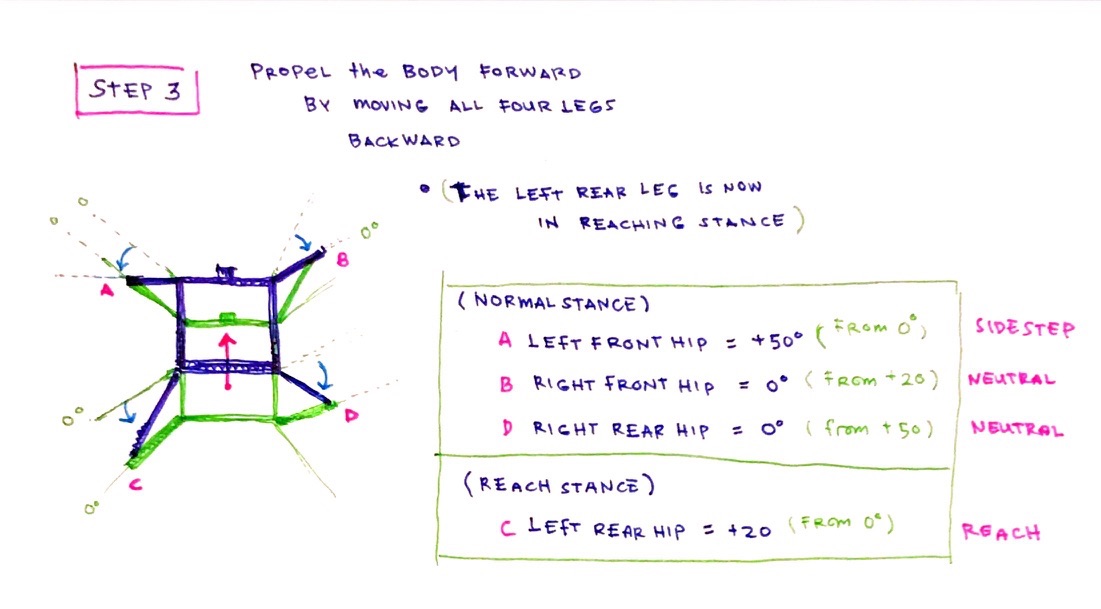 STEP 3
PROPEL the BODY FORWARD
BY MOVING ALL FOUR LEGS
BACKWARD
• (THE LEFT REAR LEG IS NOW
IN REACHING STANCE)
0°
0°
0°
B
A
0°
D
C
0°
(NORMAL STANCE)
A LEFT FRONT HIP = +50° (FROM 0°) SIDESTEP
B RIGHT FRONT HIP = 0° (FROM +20) NEUTRAL
D RIGHT REAR HIP = 0° (from +50) NEUTRAL
(REACH STANCE)
C LEFT REAR HIP = +20 (FROM 0°) REACH